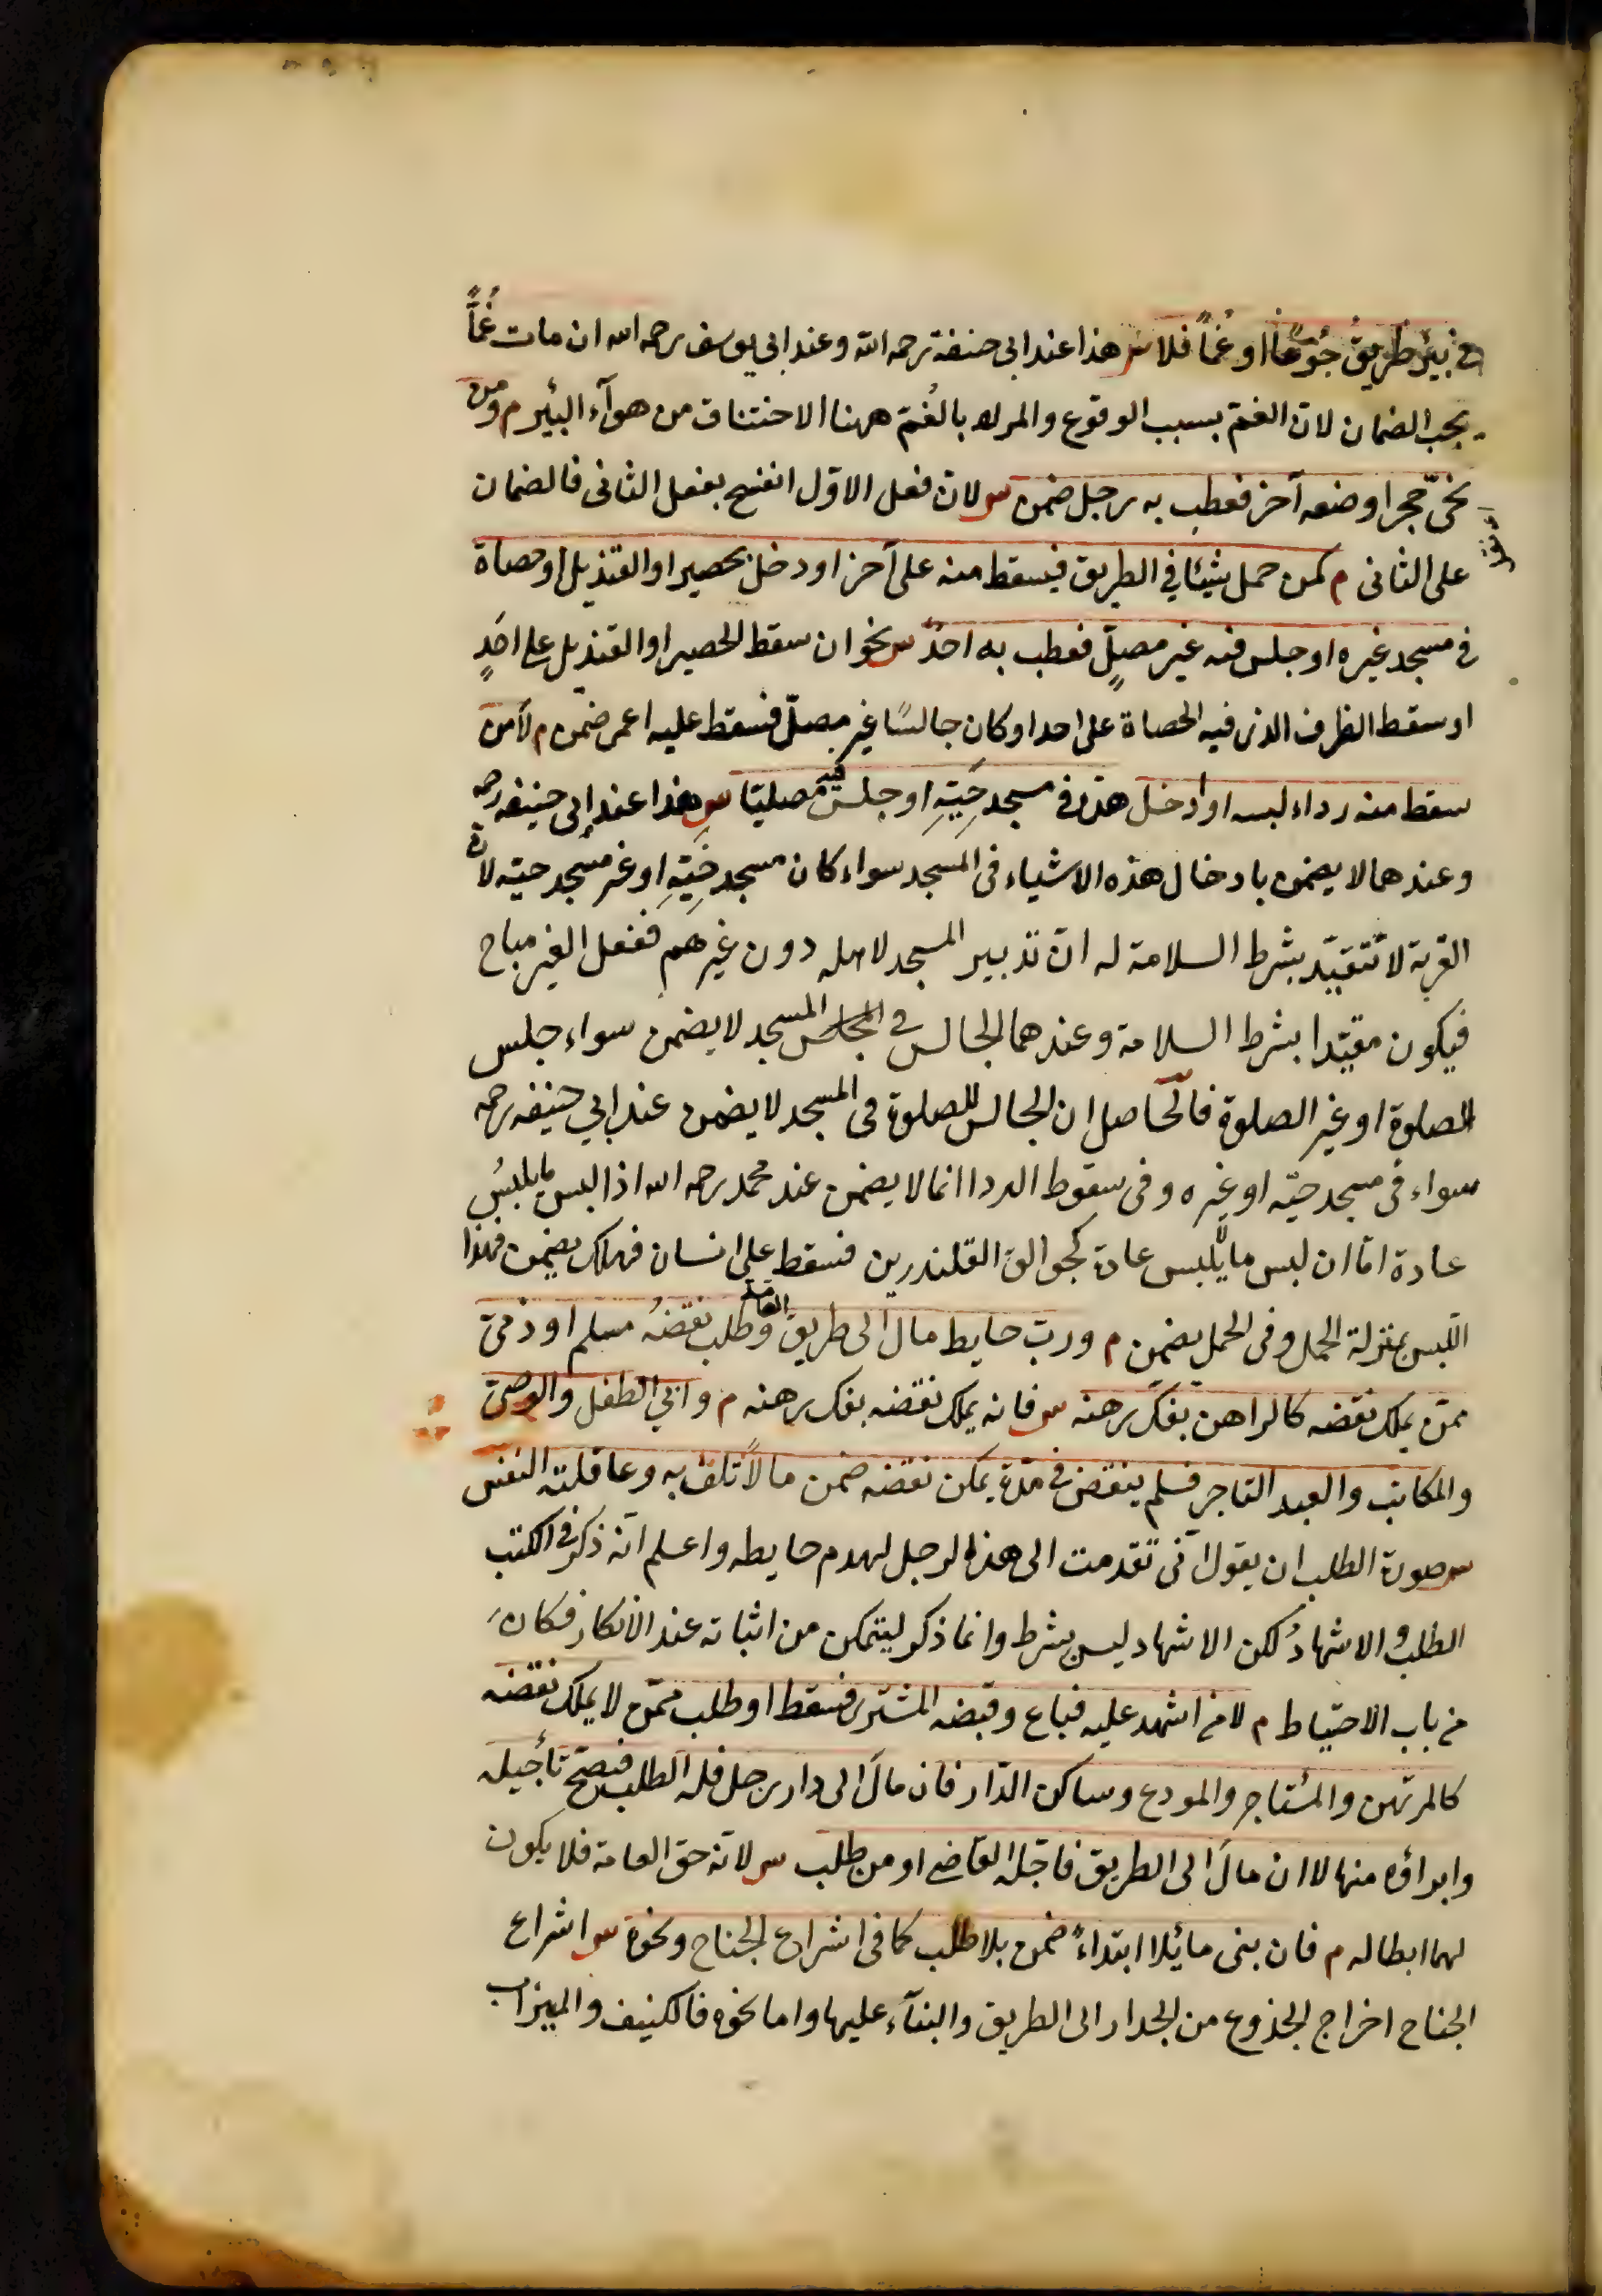 في بئر طريق جُوعًا او غُمًّا فلا س هذا عند ابى حنيفة رحمه الله وعند ابى يوسف رحمه الله ان مات غُمًّا
يجب الضمان لان الغمّ بسبب الوقوع والمراد بالغُمّ ههنا الاختناق من هوآء البئر م ومن
نحّى حجرا وضعه آخر فعطب به رجل ضمن س لان فعل الاوّل انفسخ بفعل الثانى فالضمان
على الثانى م كمن حمل شيئا في الطريق فيسقط منه على آخر او دخل بحصير او القنديل او حصاة
فى مسجد غيره او جلس فيه غير مصلٍّ فعطب به احدٌ س نحو ان سقط الحصير او القنديل على احدٍ
او سقط الظرف الذى فيه الحصاة على احد او كان جالسًا غير مصلّ فسقط عليه اعمى ضمن م لا من
سقط منه رداء لبسه او ادخل هذه فى مسجد حَيّهِ او جلس فيه مصليًا س هذا عند ابى حنيفه رحمه
وعندهما لا يضمن بادخال هذه الاشياء فى المسجد سواء كان مسجد حَيّهِ او غير مسجد حيّه لانّ
القربة لا تتقيّد بشرط السلامة له انّ تدبير المسجد لاهله دون غيرهم ففعل الغير مباح
فيكون مقيّدا بشرط السلامة وعندهما الجالس في المسجد لا يضمن سواء جلس
للصلوة او غير الصلوة فالحاصل ان الجالس للصلوة فى المسجد لا يضمن عند ابي حنيفه رحمه
سواء فى مسجد حيّه او غيره وفى سقوط الردا انما لا يضمن عند محمد رحمه الله اذا لبس ما يلبسُ
عادة امّا ان لبس ما لا يلبس عادة كجوالق القلندرين فسقط على انسان فهلك يضمن فهذا
اللبس بمنزلة الحمل وفى الحمل يضمن م وربّ حايط مال الى طريق العامة وطلب نقضهُ مسلم او ذمىّ
ممّن يملك نقضه كالراهن بفكّ رهنه س فانه يملك نقضه بفك رهنه م وابي الطفل والوصىّ
والمكاتب والعبد التاجر فلم ينقض في مدّة يمكن نقضه ضمن مالاً تلف به وعاقلته النفس
س صورة الطلب ان يقول انّى تقدمت الى هذا الرجل لهدم حايطه واعلم انّه ذكر فى الكتب
الطلب والاشهادُ لكن الاشهاد ليس بشرط وانما ذكر ليتمكن من اثباته عند الانكار فكان
من باب الاحتياط م لا من اشهد عليه فباع وقبضه المشترى فسقط او طلب ممّن لا يملك نقضه
كالمرتهن والمستاجر والمودع وساكن الدّار فان مال الى دار رجل فله الطلب فيصحّ تأجيله
وابراؤه منها لا ان مال الى الطريق فاجّله القاضى او من طلب س لانّه حق العامة فلا يكون
لهما ابطاله م فان بنى مائلا ابتداءً ضمن بلا طلب كما فى اشراع الجناح ونحوه س اشراع
الجناح اخراج الجذوع من الجدار الى الطريق والبنآء عليها واما نحوه فالكنيف والميزاب